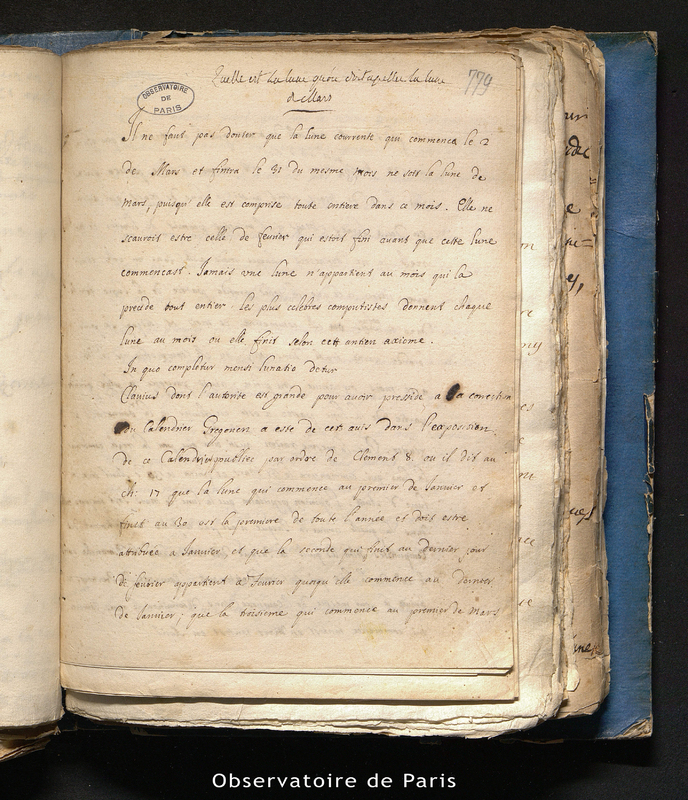 Quelle est la lune qu'on doit apeller la lune
de Mars
779
OBSERVATOIRE
DE
PARIS
Il ne faut pas douter que la lune courrente qui commença le 2
de Mars et finira le 31 du mesme mois ne soit la lune de
Mars, puisqu'elle est comprise toute entiere dans ce mois. Elle ne
scauroit estre celle de fevrier qui estoit fini avant que cette lune
commencast. Jamais une lune n'appartient au mois qui la
precede tout entier. les plus celebres computistes donnent chaque
lune au mois ou elle finit selon cett antien axiome.
In quo completur mensi lunatio detur
Clavius dont l'autorité est grande pour avoir presidé a la correction
du Calendrier Gregorien a esté de cet avis dans l'exposition
de ce Calendrier publiée par ordre de Clement 8. ou il dit au
ch. 17 que la lune qui commence au premier de Janvier et
finit au 30 est la premiere de toute l'année et doit estre
attribuée a Janvier, et que la seconde qui finit au dernier jour
de fevrier appartient a fevrier quoyqu'elle commence au dernier
de Janvier; que la troisieme qui commence au premier de Mars
Observatoire de Paris